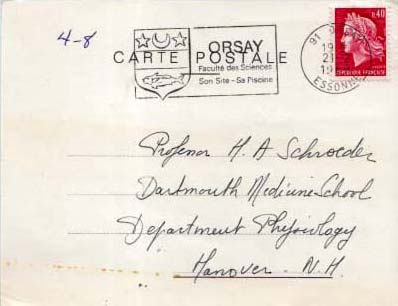 4-8
ORSAY
CARTE POSTALE
Faculté des Sciences
Son Site - Sa Piscine
0,40
REPUBLIQUE FRANÇAISE
91
ESSONNE
Professor H. A Schroeder
Dartmouth Medicine School
Department Physiology
Hanover - N.H.